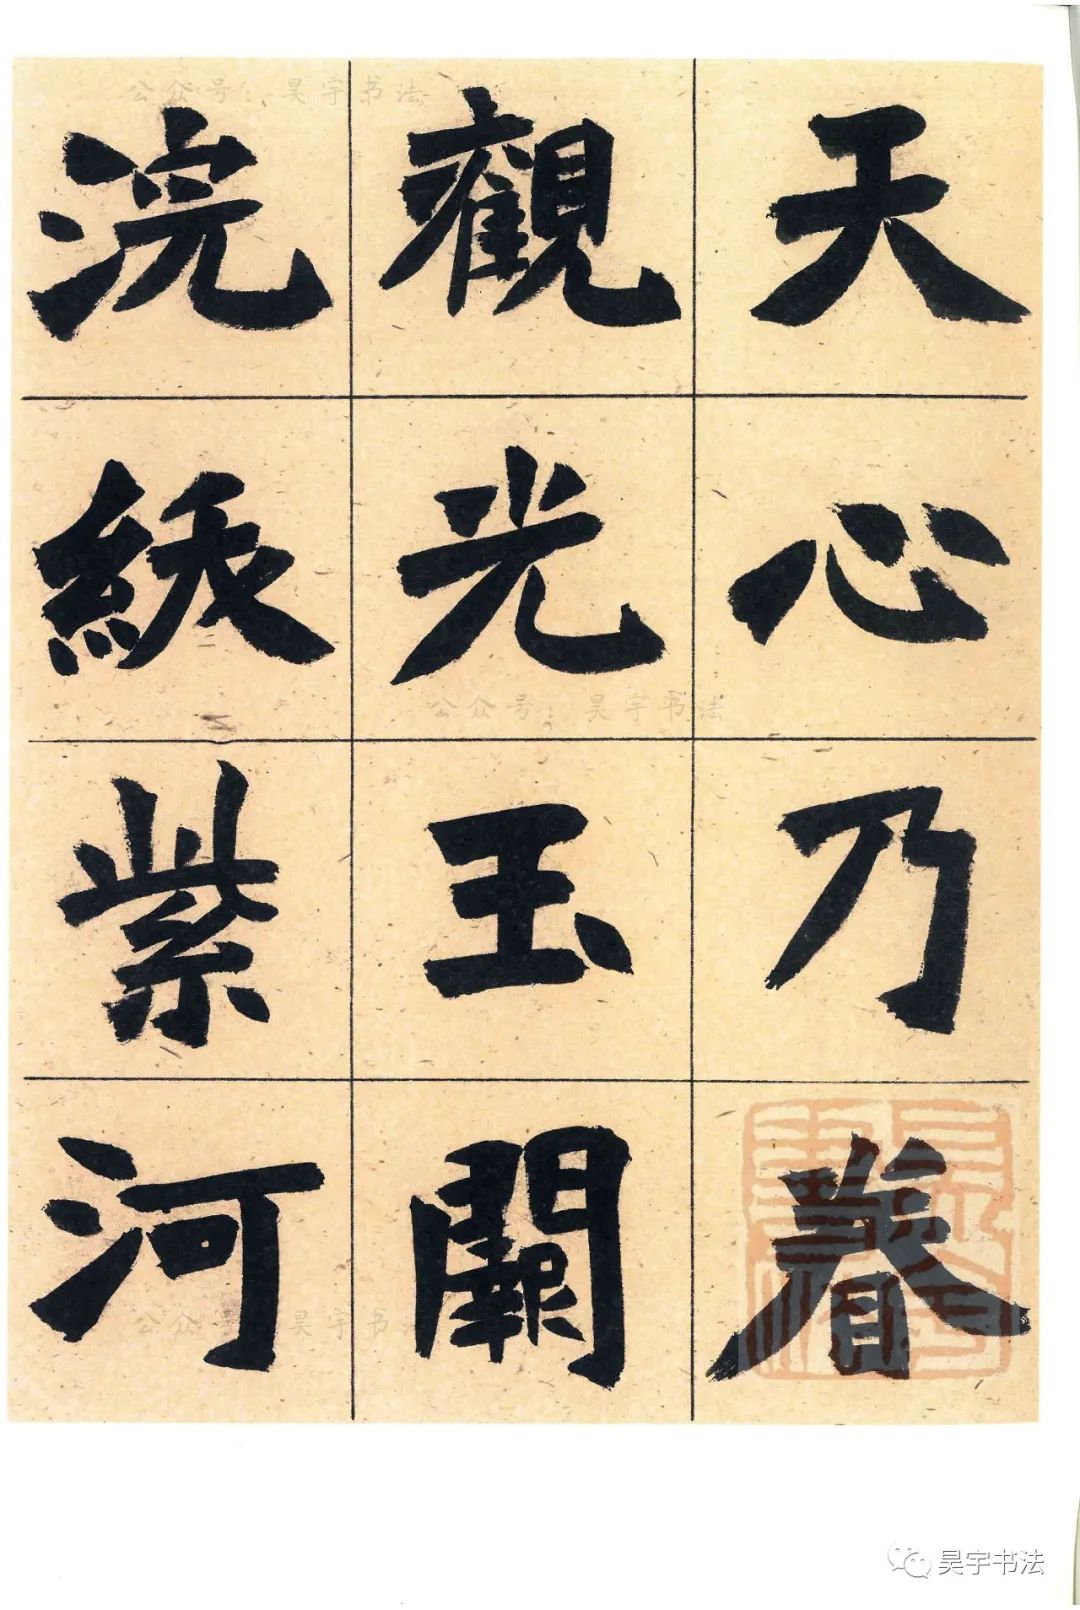 天心乃眷
觀光玉闕
浣紱紫河
公众号:昊宇书法
公众号:昊宇书法
公众号:昊宇书法
昊宇书法